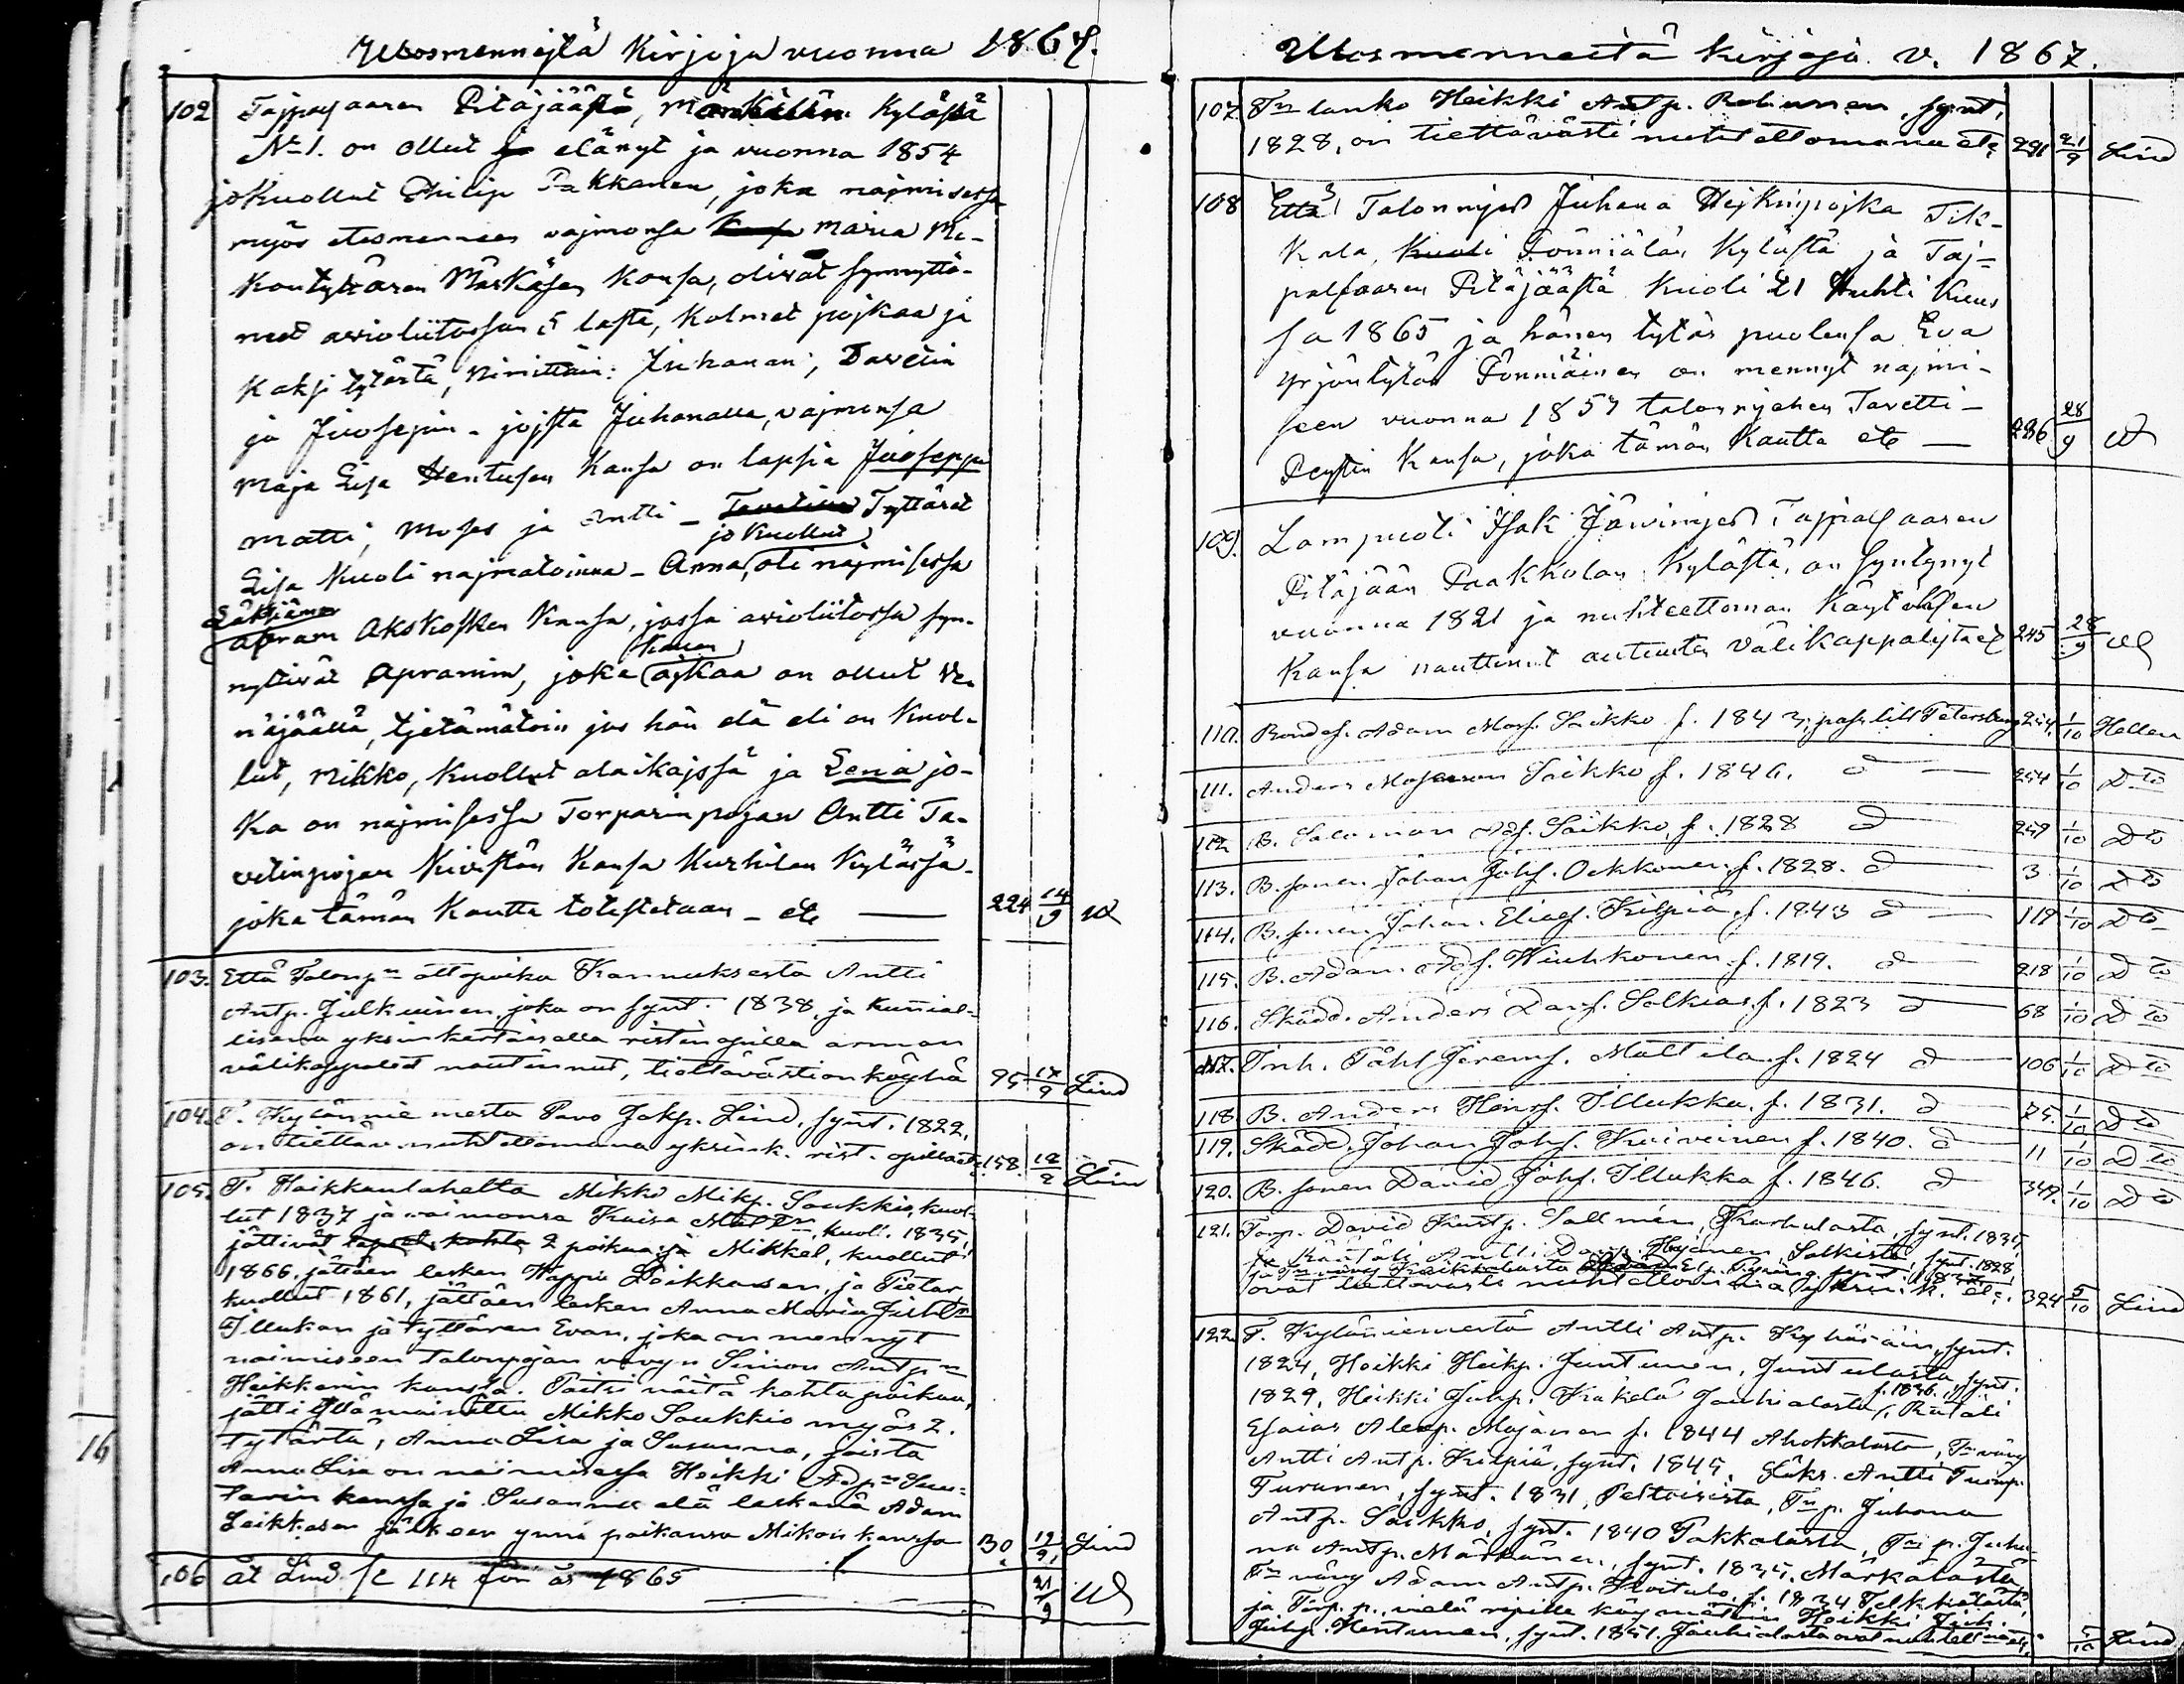 Ulosmennejtä Kirjoja vuonna 1867.
102 Tajpalsaaren Pitäjäästä, Märkälän Kylästä
No 1. on ollut ja elänyt ja vuonna 1854
jo Kuollut Philip Pakkanen, joka najmisessa
myös etesmennen vajmonsa Maria Mi-
kontyttären Märkäsen Kansa, olivat synnyttä-
net avioliitossan 5 lasta, Kolmet pojkaa ja
Kaksi tytärtä, nimittäin: Juhanan, Davetin
ja Juosepin - jojsta Juhanalla, vajmonsa
Maja Lisa Hentusen Kansa on lapsia Juoseppi
Matti, Moses ja Antti - Tavetin Tyttäret
jo Kuollut
Lisa Kuoli najmatoinna - Anna, oli najmisessa
Apram Akskosken Kansa, jossa avioliitossa syn-
nytivät Apramin, joka Kauan ajkaa on ollut We-
näjäällä, tjetämätöin jos hän elä eli on Kuol-
lut, Mikko, Kuollut alaikajssä ja Lena jo-
ka on najmisessa Torparin pojan Antti Ta-
vetinpojan Kivistön Kansa Kurhilan Kylässä
joka tämän Kautta totistetaan - etc 224 14/9 W
103. Että Talonpn ottopoika Kannuksesta Antti
Antp. Julkuinen, joka on synt. 1838, ja kunial-
lisena yksinkertaisella ristinopilla armon
välikappalet nautinnut, tiettävästi on köyhä 95 17/9 Lind
104. T. Kyläniemestä Pavo Jakp. Lind, synt. 1822,
on tiettäv. nuhteettomana yksink. rist. opilla etc. 158. 18/9 Lind
105. T. Haikkanlahelta Mikko Mikp. Saukkio, kuol-
lut 1837 ja vaimonsa Kaisa, kuoli 1835,
jättivät 2 poikaa, ja Mikkel, kuollut
1866, jättäen lesken Wappu Leikkasen, ja Pietar,
kuollut 1861, jättäen lesken Anna Maria Juhtr
Illukan ja tyttären Evan, joka on mennyt
naimiseen talonpojan vävyn Simon Antpn
Heikkerin kanssa. Paitsi näitä kahta poikaa,
jätti yllämainittu Mikko Saukkio myös 2.
tytärtä, Anna Lisa ja Susanna, joista
Anna Lisa on naimisessa Heikki Adpn Suu-
tarin kanssa ja Susanna elä leskenä Adam
Leikkasen jälkeen ynnä poikansa Mikon kanssa 30. 19/9 Lind
106 ät Lind se 114 för år 1865 21/9 W
16
Ulosmenneitä kirjoja v. 1867.
107 Tn lanko Heikki Antp. Rohunen, synt,
1828, on tiettävästi nuhtettomana etc. 291 21/9 Lind
108 Että Talonmjes Juhana Hejkinpojka Tik-
kala, Fonniälän Kylästä ja Taj-
palsaaren Pitäjäästä Kuoli 21 Huhti Kuus
sa 1865 ja hänen tytär puolensa Eva
Yrjöntytär Fonniäinen on mennyt najmi-
seen vuonna 1857 talonmjehen Tavetti
Pentin Kansa, joka tämän Kautta etc 296 28/9 W
109. Lampuoti Isak Järvinjes Tajpalsaaren
Pitäjään Paakkolan Kylästä, on syntynyt
vuonna 1821 ja nuhteettoman Käytöksen
Kansa nauttinut autuuten Välikappalejta etc 245 28/9 W
110. Bondes. Adam Mosf. Saikko f. 1843, pass till Petersburg 254. 1/10 Hellen
111. Anders Mosesson Saikko f. 1846. d 254 1/10 Dto
112. B. Salomon Adf. Saikko, f. 1828 d 259 1/10 Dto
113. B. sonen Johan Johf. Ockkonen, f. 1828. d 3 1/10 Dto
114. B. sonen Johan Eliasf. Kilpiä, f. 1843 d 119 1/10 Dto
115. B. Adam Adf. Wiuhkonen f. 1819. d 218 1/10 Dto
116. Skädd. Anders Danf. Solkias f. 1823 d 68 1/10 Dto
117. Inh. Påhl Jeremf. Mattila f. 1824 d 106 1/10 Dto
118. B. Anders Henrf. Illukka f. 1831. d 75. 1/10 Dto
119. Skädd. Johan Johf. Kuiveinen f. 1840. d 11 1/10 Dto
120. B. sonen David Johf. Illukka f. 1846. d 349. 1/10 Dto
121. Torp. David Kustp. Sallmén, Karhulasta, synt. 1835,
ja Räätäli Antti Davp. Hajänen, Solkista, synt. 1828,
ovat tiettävästi nuhtettomina yksin. k. etc. 324 5/10 Lind
122. T. Kyläniemestä Antti Antp. Kyhäräin, synt.
1824, Heikki Heikp. Juntunen, Juntulasta, synt.
1829, Heikki Juhp. Kräkelä Jauhialasta, f. 1836. Rätäli
Esaias Alexp. Majänen f. 1844 Ahokkalasta, Tn vävy
Antti Antp. Kilpiä, synt. 1845, Läks. Antti Tuomp.
Turunen, synt. 1831, Peltoisista, Tn p. Juhana
Antp. Saikko, synt. 1840 Pakkalasta, Tn p. Juha-
na Antp. Märkänen, synt. 1835. Märkälästä
Tn vävy Adam Antp. Koitalo, f. 1834
ja Torp. p., vielä ripille käymätöin Heikki
Juhp. Hentunen, synt. 1851. Jauhialasta ovat nuhtett. etc. 5/10 Lind